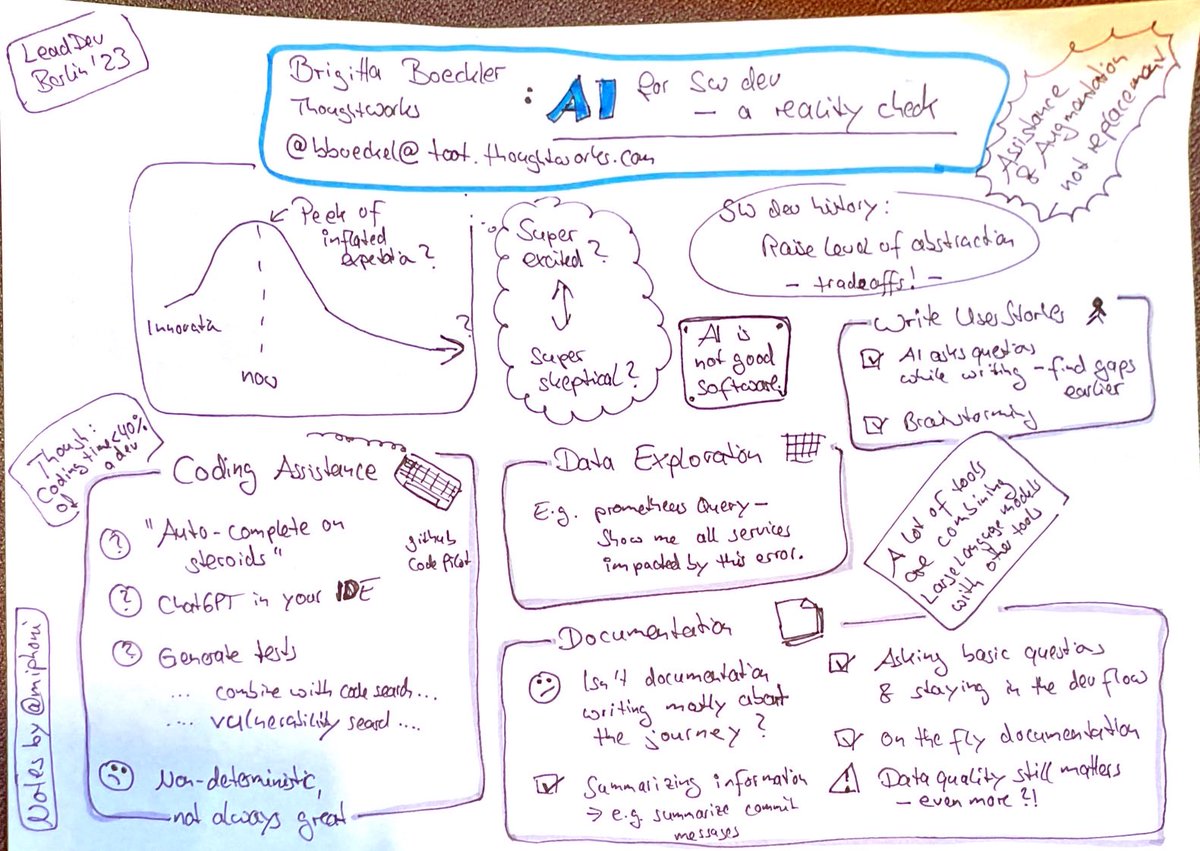 LeadDev
Berlin '23
Brigitta Boeckler
Thoughtworks
@bboeckel@toot.thoughtworks.com
: AI for SW dev
- a reality check
Assistance
& Augmentation
not replacement
Peek of
inflated
expectation?
Innovation
now
?
Super
excited?
Super
skeptical?
SW dev history:
Raise level of abstraction
- tradeoffs! -
AI is
not good
software.
Write User Stories
AI asks question
while writing - find gaps
earlier
Brainstorming
Though:
Coding time < 40%
of a dev
Coding Assistance
? "Auto-complete on
steroids"
github
Code Pilot
? ChatGPT in your IDE
? Generate tests
... combine with code search...
.... vulnerability search ....
Non-deterministic,
not always great
Data Exploration
E.g. prometheus Query -
Show me all services
impacted by this error.
A lot of tools
are combining
Large Language models
with other tools
Documentation
Isn't documentation
writing mostly about
the journey?
Summarizing information
→ e.g. summarize commit
messages
Asking basic question
& staying in the dev flow
On the fly documentation
! Data quality still matters
- even more?!
Notes by @miphoni